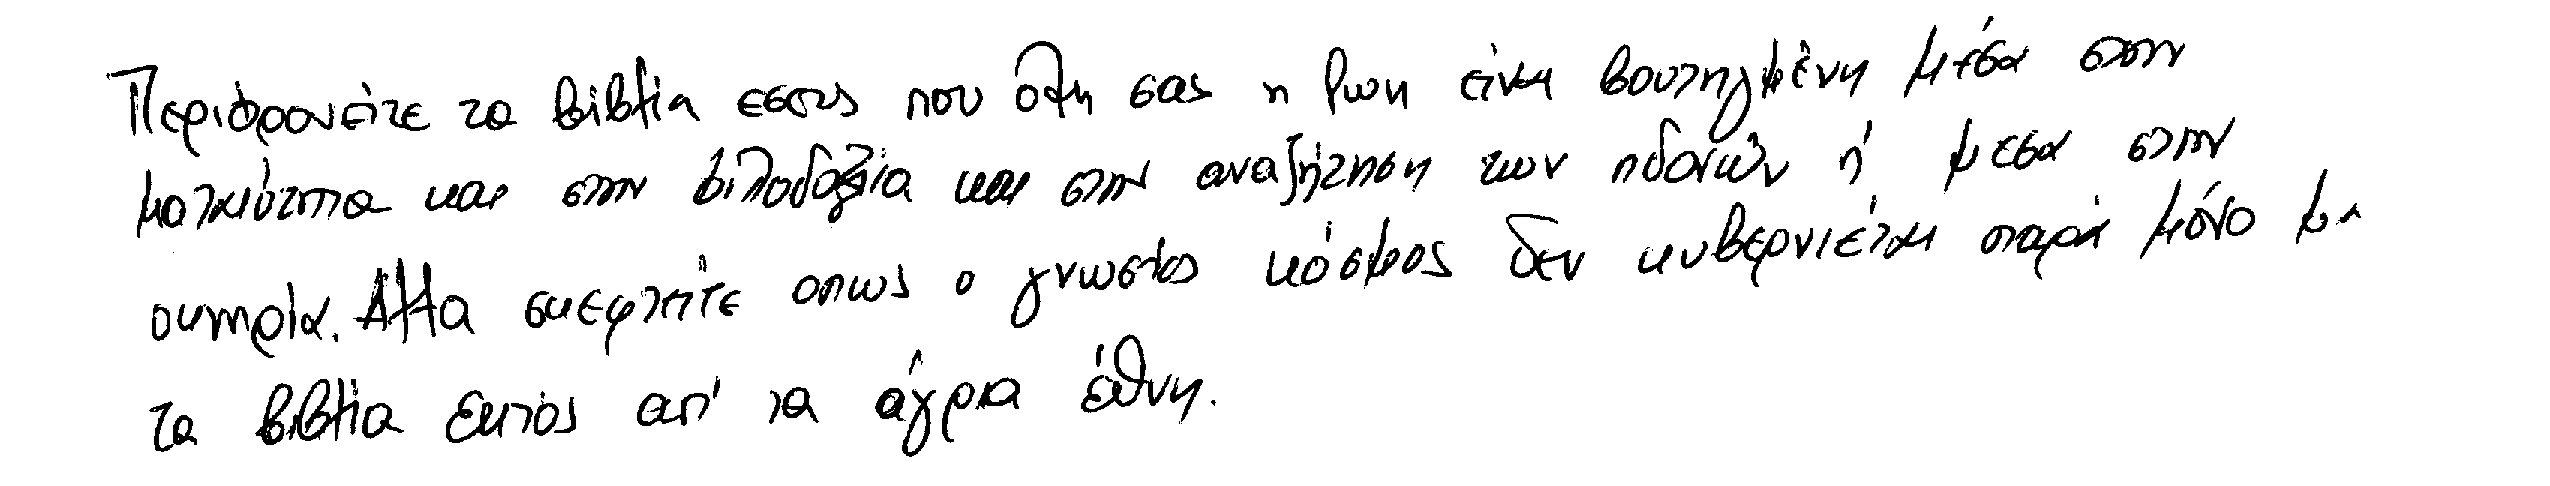 Περιφρονείτε τα βιβλία εσεις που όλη σας η ζωη είναι βουτηγμένη μέσα στην
ματαιότητα και στην φιλοδοξία και στην αναζήτηση των ηδονών ή μεσα στην
οκνηρία. Αλλα σκεφτείτε οπως ο γνωστός κόσμος δεν κυβερνιέται παρά μόνο με
τα βιβλία εκτός απ' τα άγρια έθνη.